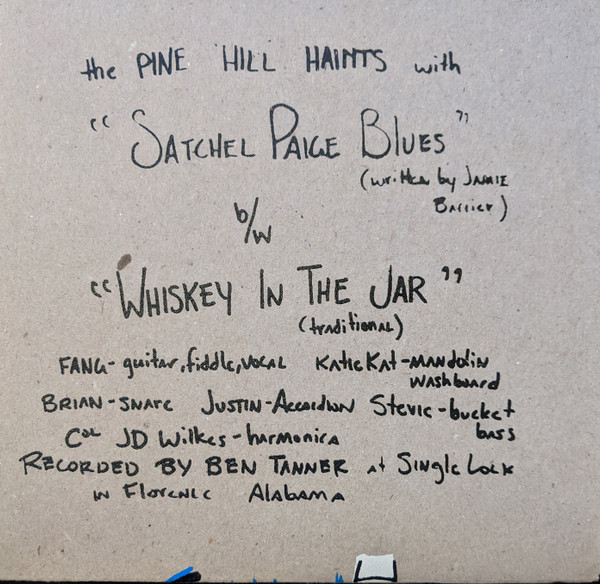 the PINE HILL HAINTS with
"SATCHEL PAIGE BLUES"
(written by JAMIE
BARRIER)
b/w
"WHISKEY IN THE JAR"
(traditional)
FANG-guitar, fiddle, VOCAL KatieKat-MANdoliN
WAShboard
BRIAN-SNARE JUSTIN-Accordion Stevie-bucket
bass
Col JD Wilkes-harmonica
RECORDED BY BEN TANNER at Single Lock
in Florence Alabama